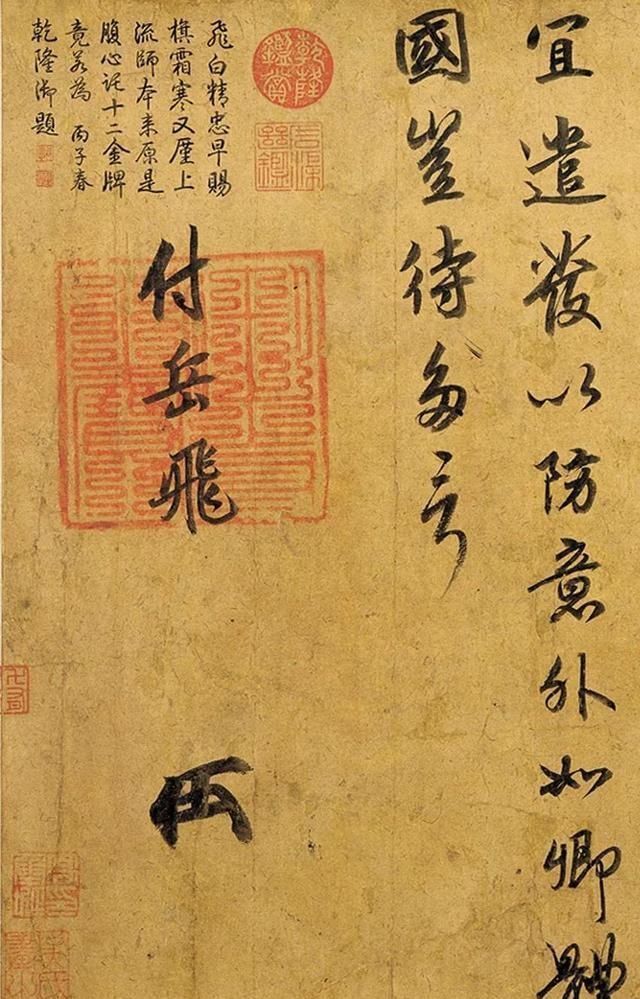 宜遣發以防意外如卿
國豈待多言
付岳飛
乾隆鑑賞
飛白精忠早賜
旗霜寒又廑上
流師本来原是
腹心託十二金牌
竟若為 丙子春
乾隆御題